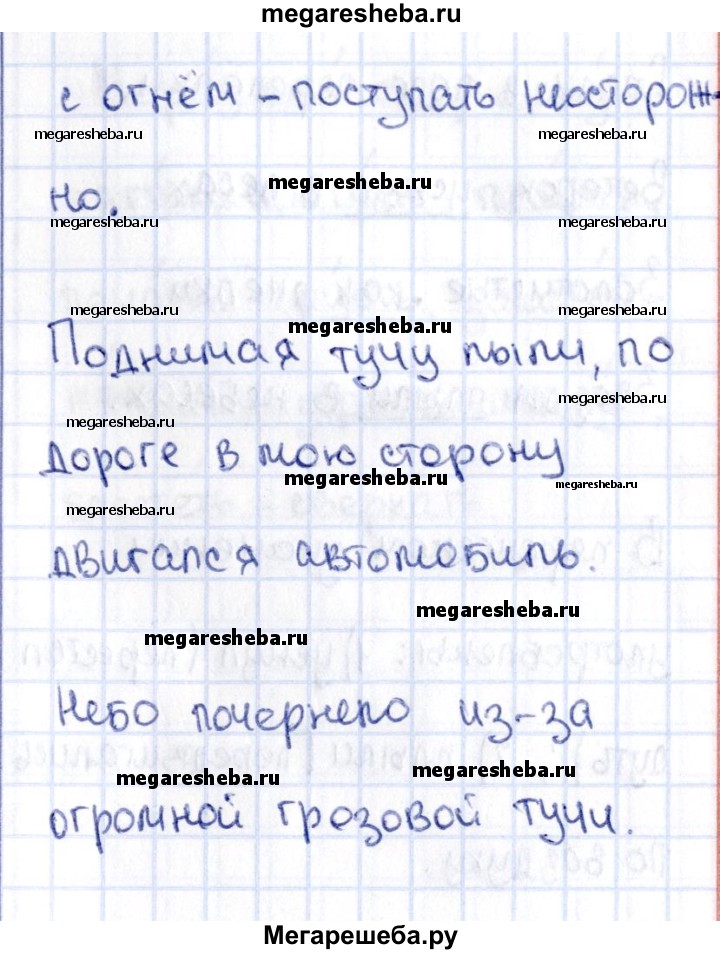 megaresheba.ru
с огнём – поступать неосторож-
megaresheba.ru megaresheba.ru
megaresheba.ru
но.
megaresheba.ru megaresheba.ru
megaresheba.ru megaresheba.ru
megaresheba.ru
Поднимая тучу пыли, по
megaresheba.ru
megaresheba.ru
дороге в мою сторону
megaresheba.ru megaresheba.ru
megaresheba.ru
двигался автомобиль.
megaresheba.ru
megaresheba.ru
Небо почернело из-за
megaresheba.ru megaresheba.ru
огромной грозовой тучи.
Мегарешеба.ру